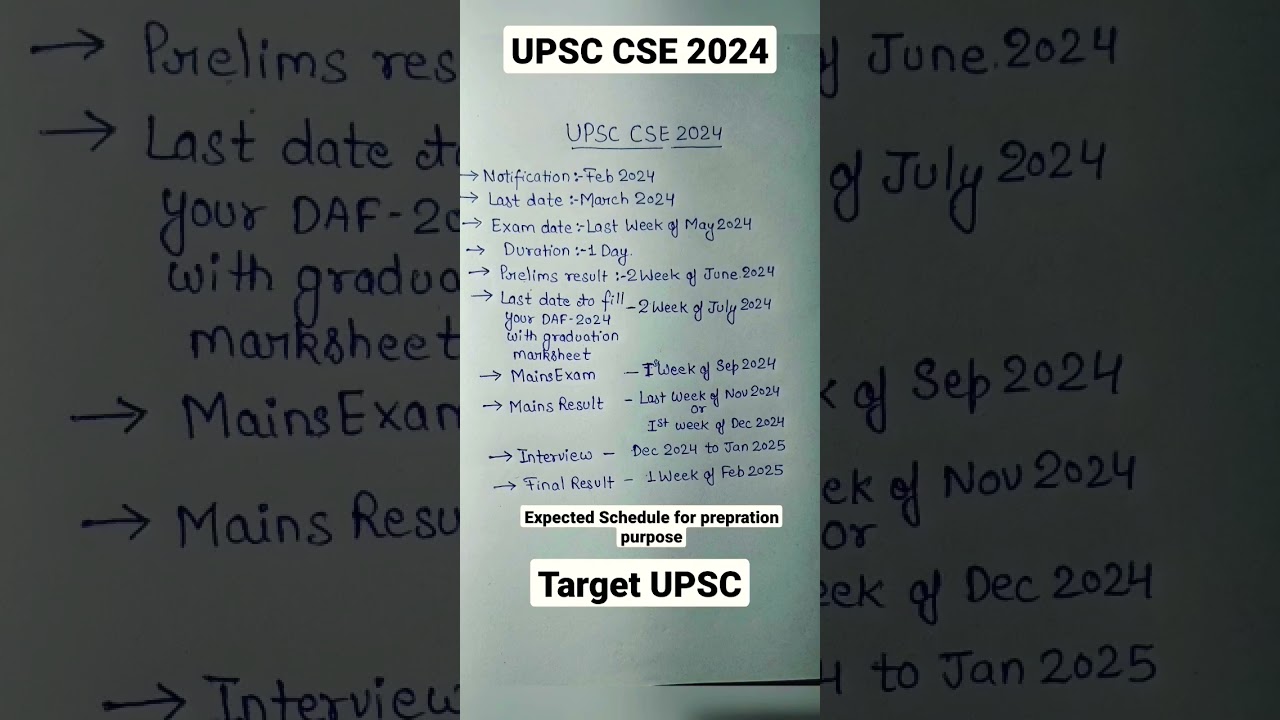 UPSC CSE 2024
UPSC CSE 2024
→ Notification :- Feb 2024
→ Last date :- March 2024
→ Exam date :- Last Week of May 2024
→ Duration :- 1 Day.
→ Prelims result :- 2 Week of June. 2024
→ Last date to fill - 2 Week of July 2024
your DAF-2024
with graduation
marksheet
→ Mains Exam - Ist Week of Sep 2024
→ Mains Result - Last Week of Nov 2024
or
Ist week of Dec 2024
→ Interview - Dec 2024 to Jan 2025
→ Final Result - 1 Week of Feb 2025
Expected Schedule for prepration
purpose
Target UPSC
→ Prelims res
→ Last date to
your DAF-20
with gradua
marksheet
→ Mains Exam
→ Mains Resu
→ Interview
of June. 2024
of July 2024
k of Sep 2024
eek of Nov 2024
or
eek of Dec 2024
4 to Jan 2025